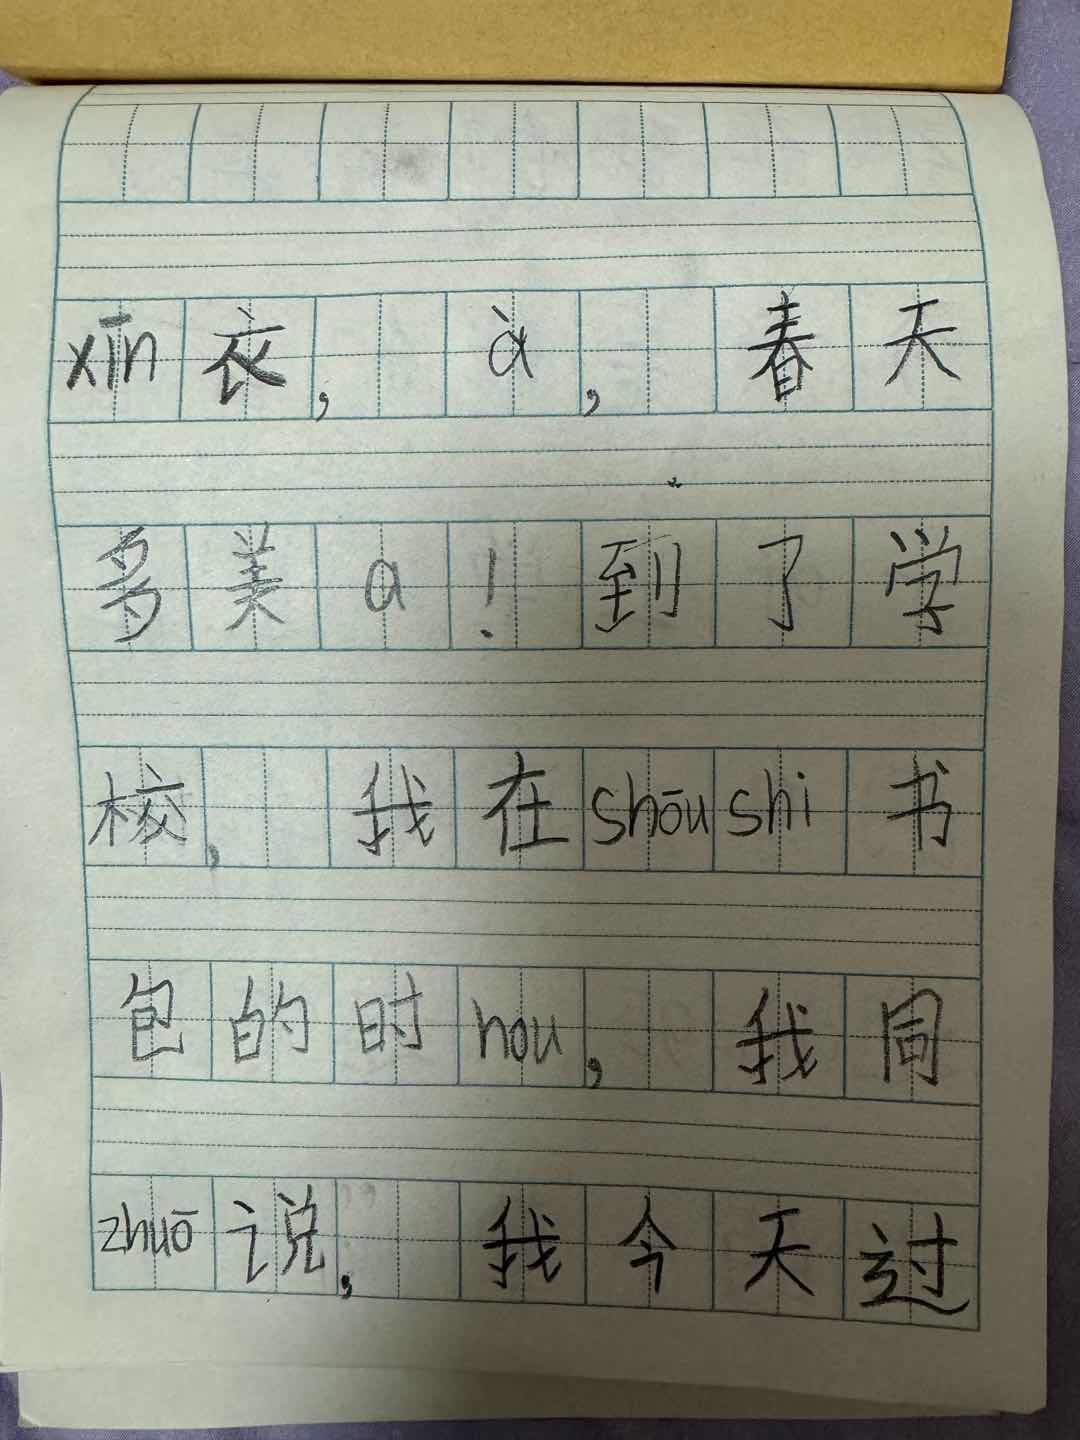 xīn衣，à，春天
多美a！到了学
校，我在shōushi书
包的时hou，我同
zhuō说，我今天过